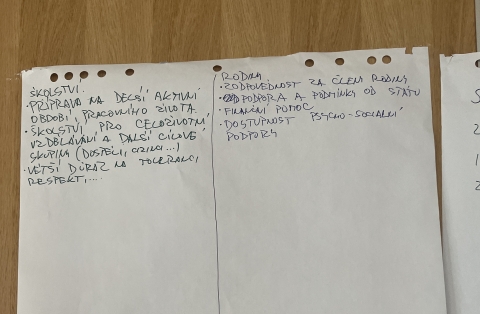 ŠKOLSTVÍ:
• PŘÍPRAVA NA DELŠÍ AKTIVNÍ
OBDOBÍ PRACOVNÍHO ŽIVOTA
• ŠKOLSTVÍ PRO CELOŽIVOTNÍ
VZDĚLÁVÁNÍ A DALŠÍ CÍLOVÉ
SKUPINY (DOSPĚLÍ, CIZINCI...)
• VĚTŠÍ DŮRAZ NA TOLERANCI,
RESPEKT,....
RODINA
• ZODPOVĚDNOST ZA ČLENY RODINY
• PODPORA A PODMÍNKY OD STÁTU
• FINANČNÍ POMOC
• DOSTUPNOST PSYCHO-SOCIÁLNÍ
PODPORY